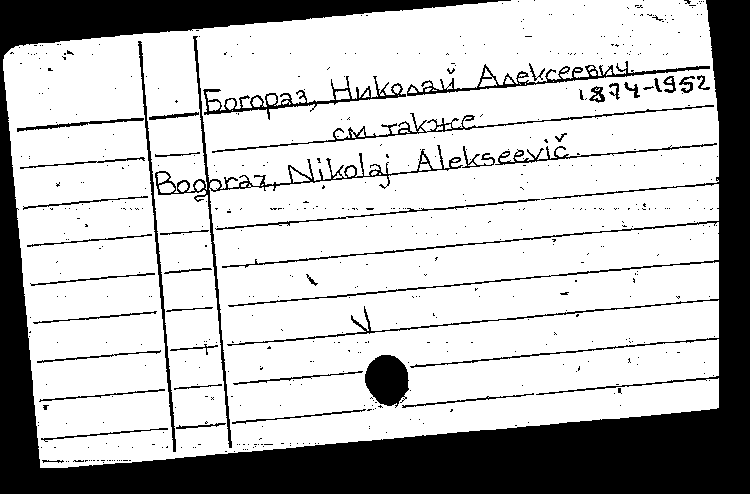 Богораз, Николай Алексеевич
1874-1952
см. также
Bogoraz, Nikolaj Alekseevič